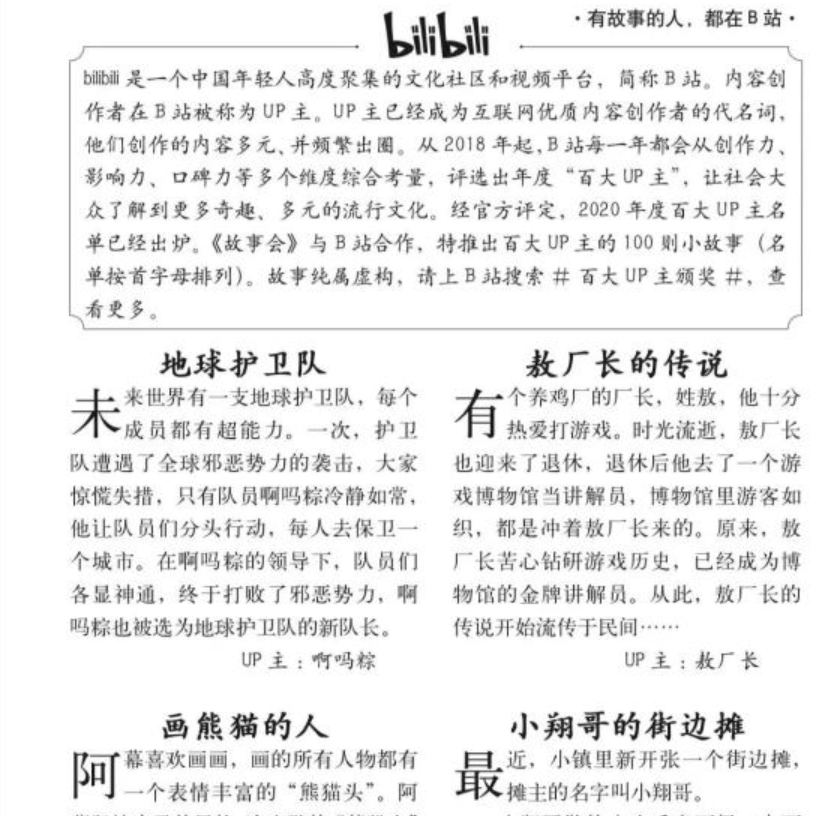 ·有故事的人，都在B站·
bilibili
bilibili 是一个中国年轻人高度聚集的文化社区和视频平台，简称B站。内容创
作者在B站被称为UP主。UP主已经成为互联网优质内容创作者的代名词，
他们创作的内容多元、并频繁出圈。从2018年起，B站每一年都会从创作力、
影响力、口碑力等多个维度综合考量，评选出年度“百大UP主”，让社会大
众了解到更多奇趣、多元的流行文化。经官方评定，2020年度百大UP主名
单已经出炉。《故事会》与B站合作，特推出百大UP主的100则小故事（名
单按首字母排列）。故事纯属虚构，请上B站搜索#百大UP主颁奖#，查
看更多。
地球护卫队
未来世界有一支地球护卫队，每个
成员都有超能力。一次，护卫
队遭遇了全球邪恶势力的袭击，大家
惊慌失措，只有队员啊吗粽冷静如常，
他让队员们分头行动，每人去保卫一
个城市。在啊吗粽的领导下，队员们
各显神通，终于打败了邪恶势力，啊
吗粽也被选为地球护卫队的新队长。
UP主：啊吗粽
敖厂长的传说
有个养鸡厂的厂长，姓敖，他十分
热爱打游戏。时光流逝，敖厂长
也迎来了退休，退休后他去了一个游
戏博物馆当讲解员，博物馆里游客如
织，都是冲着敖厂长来的。原来，敖
厂长苦心钻研游戏历史，已经成为博
物馆的金牌讲解员。从此，敖厂长的
传说开始流传于民间……
UP主：敖厂长
画熊猫的人
阿幕喜欢画画，画的所有人物都有
一个表情丰富的“熊猫头”。阿
小翔哥的街边摊
最近，小镇里新开张一个街边摊，
摊主的名字叫小翔哥。